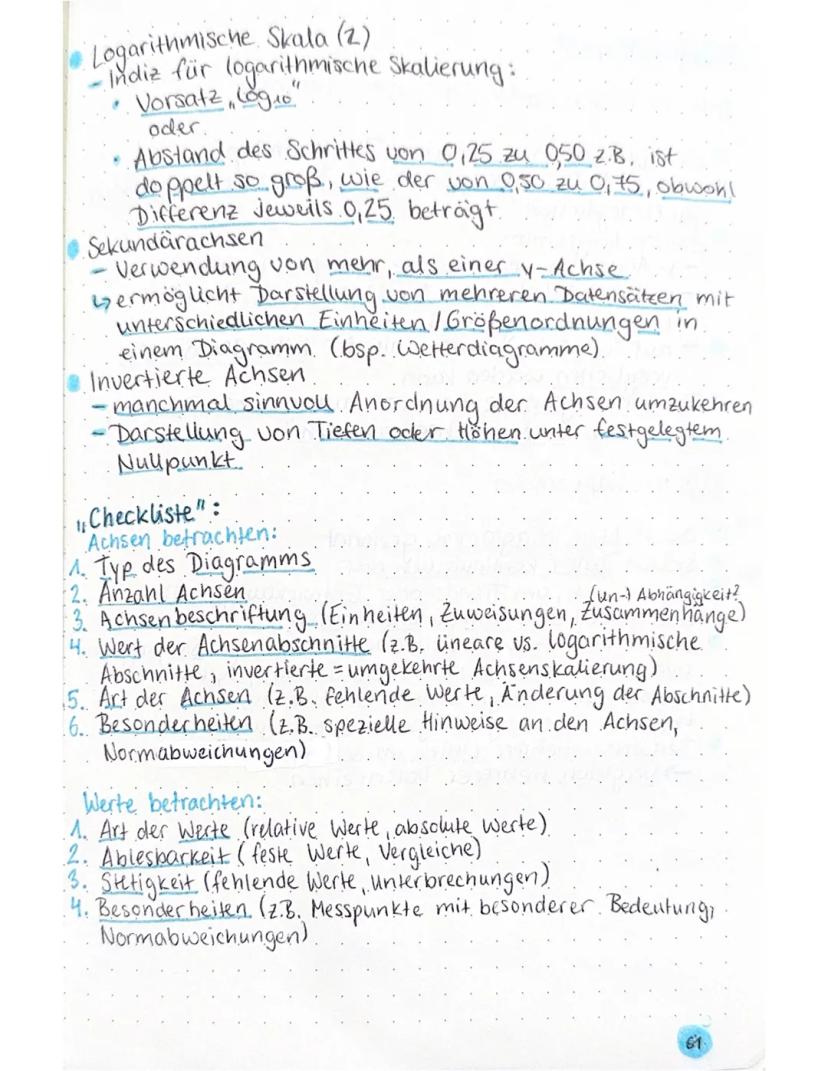 Logarithmische Skala (2)
- Indiz für logarithmische Skalierung:
• Vorsatz „log10"
oder
• Abstand des Schrittes von 0,25 zu 0,50 z.B. ist
doppelt so groß, wie der von 0,50 zu 0,75, obwohl
Differenz jeweils 0,25 beträgt
Sekundärachsen
- Verwendung von mehr, als einer y-Achse
↳ ermöglicht Darstellung von mehreren Datensätzen mit
unterschiedlichen Einheiten / Größenordnungen in
einem Diagramm (bsp. Wetterdiagramme)
Invertierte Achsen
- manchmal sinnvoll Anordnung der Achsen umzukehren
- Darstellung von Tiefen oder Höhen unter festgelegtem
Nullpunkt
„Checkliste":
Achsen betrachten:
1. Typ des Diagramms
2. Anzahl Achsen
(un-) Abhängigkeit?
3. Achsenbeschriftung (Einheiten, Zuweisungen, Zusammenhänge)
4. Wert der Achsenabschnitte (z.B. lineare vs. logarithmische
Abschnitte, invertierte = umgekehrte Achsenskalierung)
5. Art der Achsen (z.B. fehlende Werte, Änderung der Abschnitte)
6. Besonderheiten (z.B. spezielle Hinweise an den Achsen,
Normabweichungen)
Werte betrachten:
1. Art der Werte (relative Werte, absolute Werte)
2. Ablesbarkeit (feste Werte, Vergleiche)
3. Stetigkeit (fehlende Werte, Unterbrechungen)
4. Besonderheiten (z.B. Messpunkte mit besonderer Bedeutung,
Normabweichungen)
61